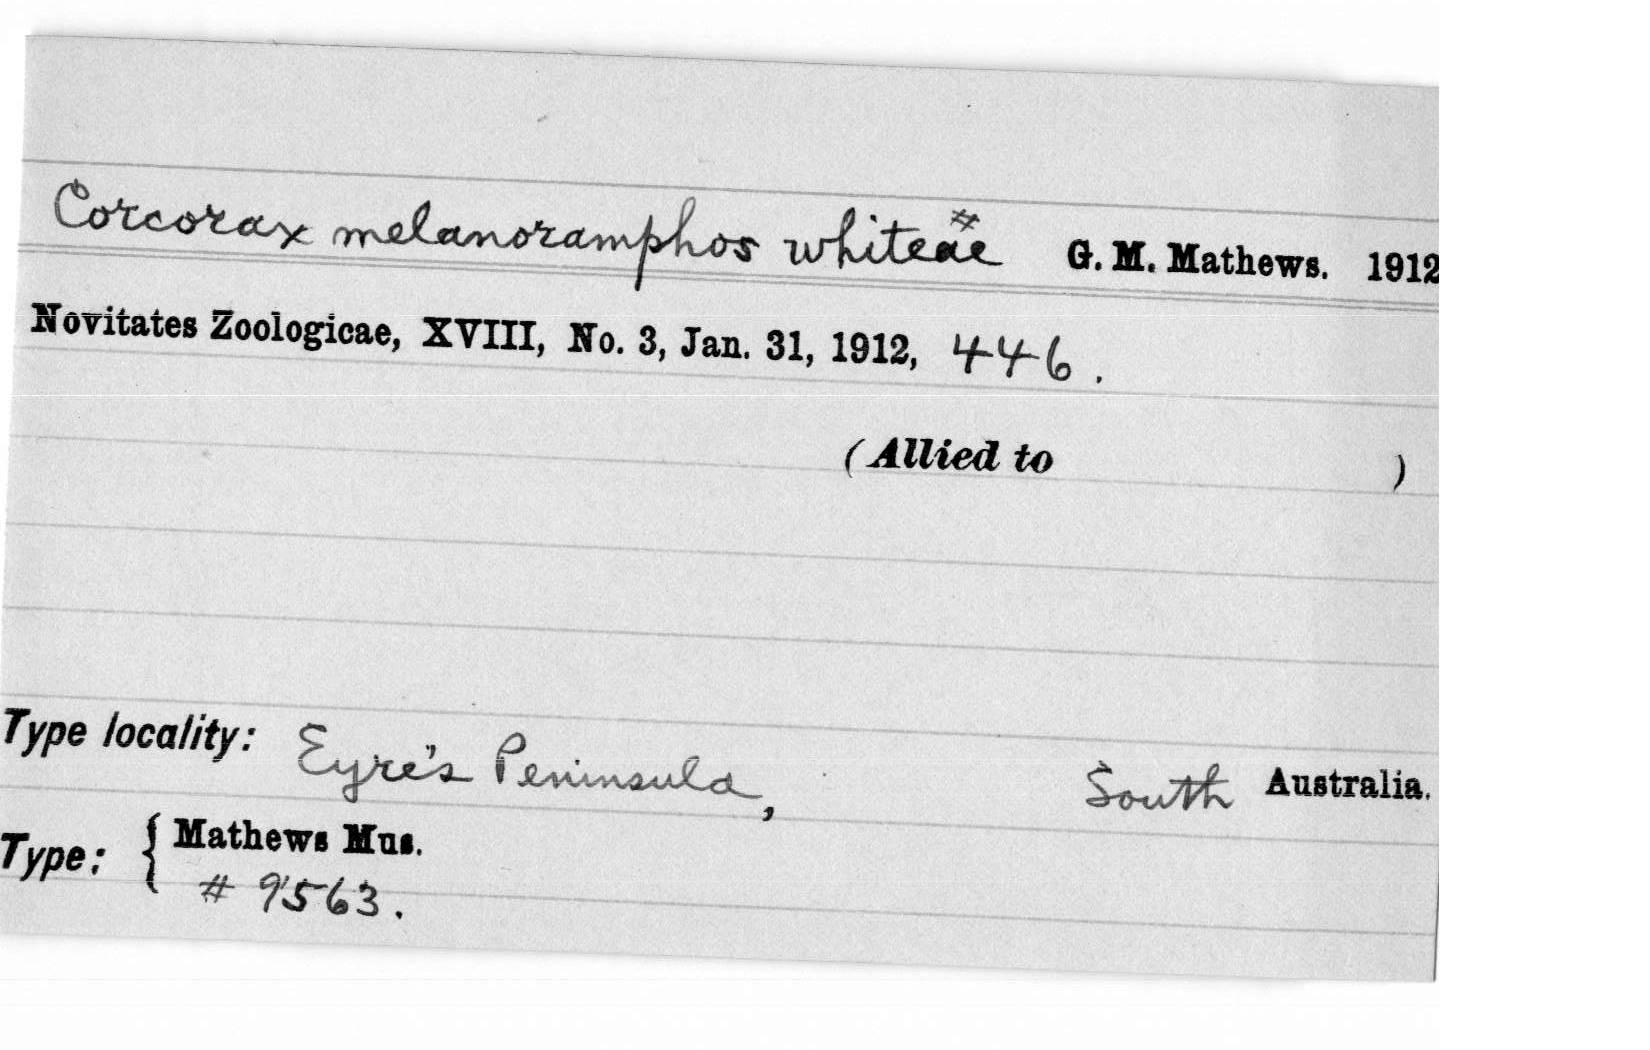 Corcorax melanoramphos whiteae # G. M. Mathews. 1912
Novitates Zoologicae, XVIII, No. 3, Jan. 31, 1912, 446.
(Allied to )
Type locality: Eyre's Peninsula, South Australia.
Type: { Mathews Mus.
# 9563.